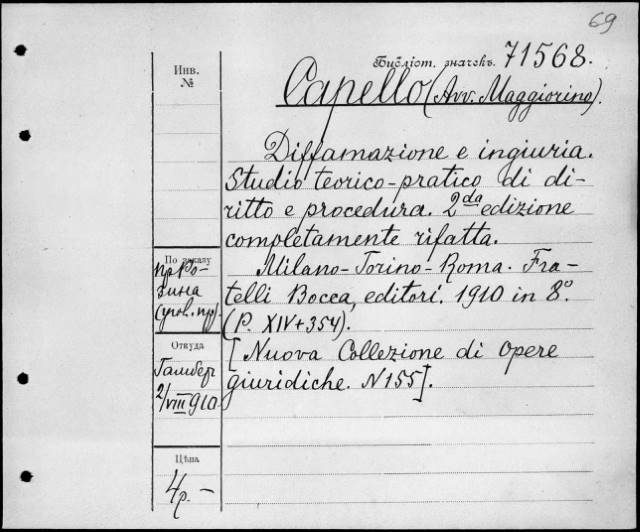 69
Библіот. значекъ 71568.
Инв.
№
Capello (Avv. Maggiorino).
Diffamazione e ingiuria.
Studio teorico-pratico di di-
ritto e procedura. 2da edizione
completamente rifatta.
Milano-Torino-Roma. Fra-
telli Bocca, editori. 1910 in 8º
(P. XIV+354).
[Nuova Collezione di Opere
giuridiche. N 155].
По заказу
пр Ро-
зина
(угол. пр).
Откуда
Гамбер
2/VIII 910
Цѣна
4р. –